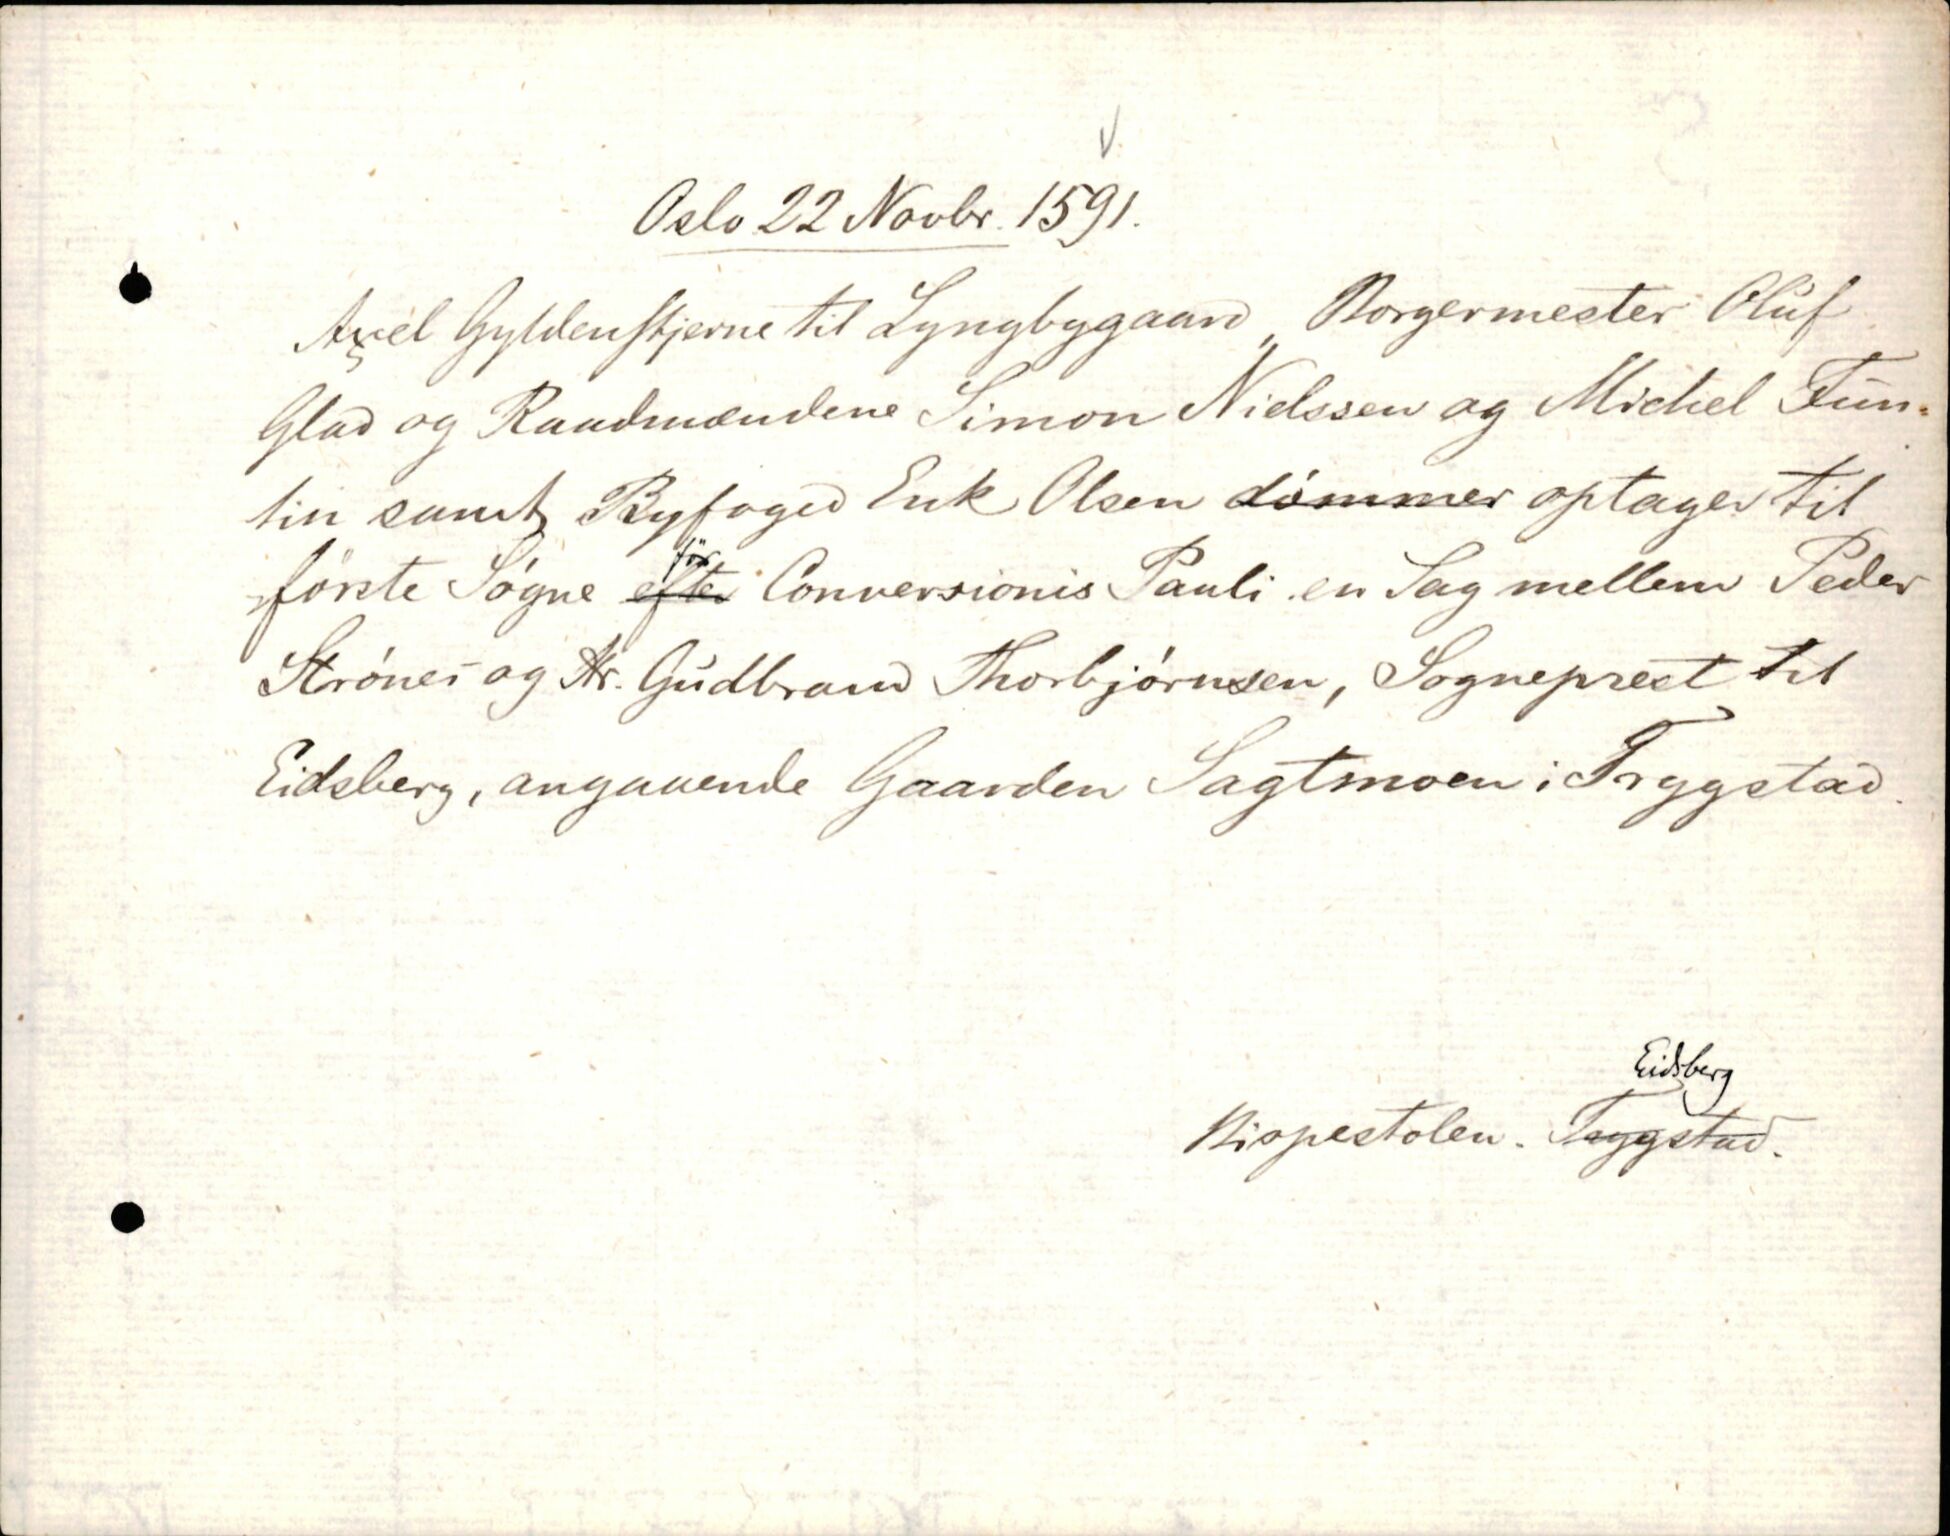 Oslo 22 Novbr. 1591.
Axel Gyldenstjerne til Lyngbygaard, Borgermester Oluf
Glad og Raadmændene Simon Nielssen og Michel Fun-
tin samt Byfoged Erik Olsen dömmer optager til
för
förste Søgne efter Conversionis Pauli en Sag mellem Peder
Strønes og Hr. Gudbrand Thorbjørnsen, Sogneprest til
Eidsberg, angaaende Gaarden Sagtmoen i Trygstad.
Eidsberg
Bispestolen. Trygstad.